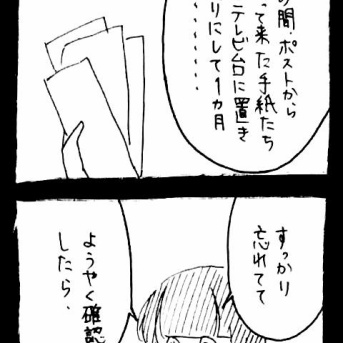 の間、ポストから
って来た手紙たち
テレビ台に置き
りにして1ヵ月
‥‥‥‥
すっかり
忘れてて
ようやく確認
したら、